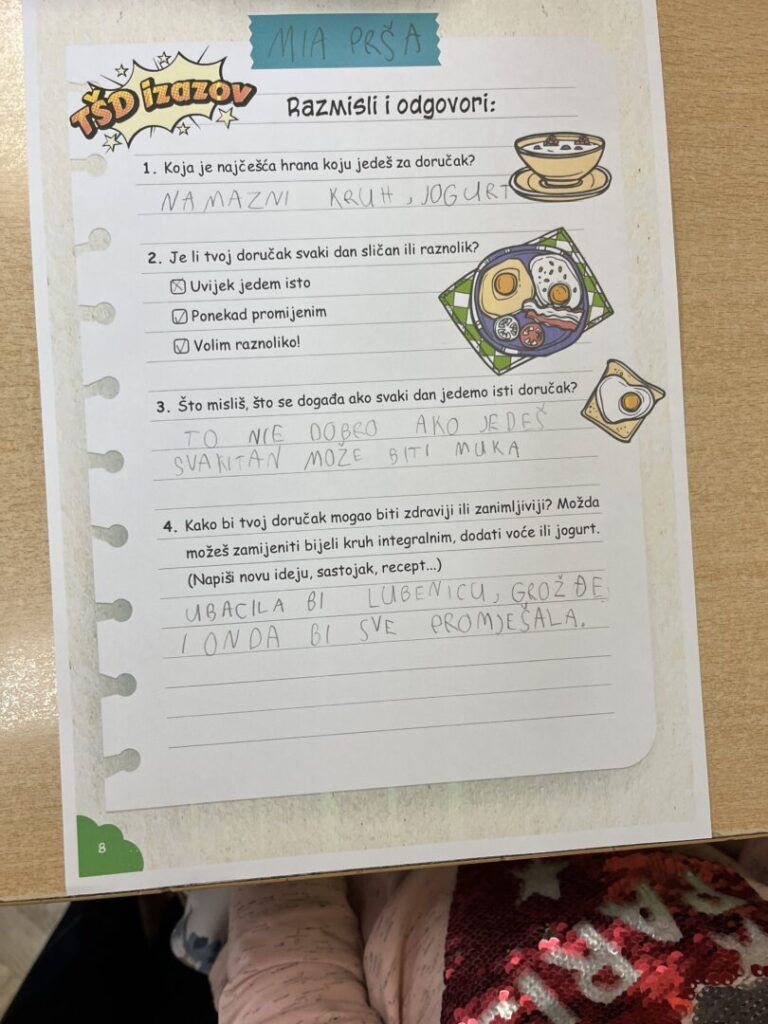 MIA PRŠA
TŠD izazov
Razmisli i odgovori:
1. Koja je najčešća hrana koju jedeš za doručak?
NAMAZNI KRUH, JOGURT
2. Je li tvoj doručak svaki dan sličan ili raznolik?
Uvijek jedem isto
Ponekad promijenim
Volim raznoliko!
3. Što misliš, što se događa ako svaki dan jedemo isti doručak?
TO NIE DOBRO AKO JEDEŠ
SVAKITAN MOŽE BITI MUKA
4. Kako bi tvoj doručak mogao biti zdraviji ili zanimljiviji? Možda
možeš zamijeniti bijeli kruh integralnim, dodati voće ili jogurt.
(Napiši novu ideju, sastojak, recept...)
UBACILA BI LUBENICU, GROŽĐE
I ONDA BI SVE PROMJEŠALA.
8